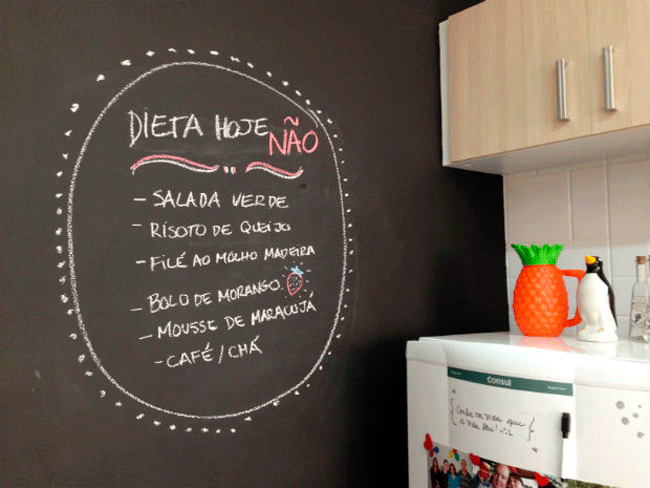 DIETA HOJE NÃO
- SALADA VERDE
- RISOTO DE QUEIJO
- FILÉ AO MOLHO MADEIRA
- BOLO DE MORANGO
- MOUSSE DE MARACUJÁ
- CAFÉ/CHÁ
Consul
a vida